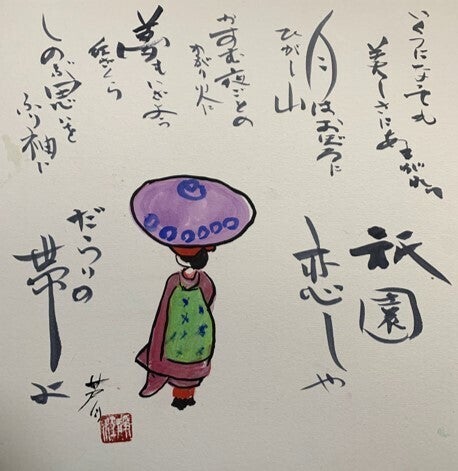 いくつになっても
美しさにあこがれる
月はおぼろに
ひがし山
かすむ夜ごとの
かがり火に
夢もいざよう
紅ざくら
しのぶ思いを
ふり袖に
祇園
恋しや
だらりの
帯よ